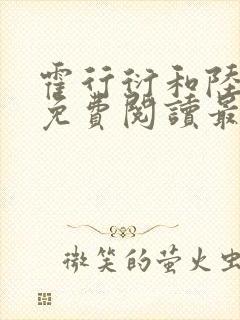 霍行衍和陸
免費閱讀最
微笑的萤火虫